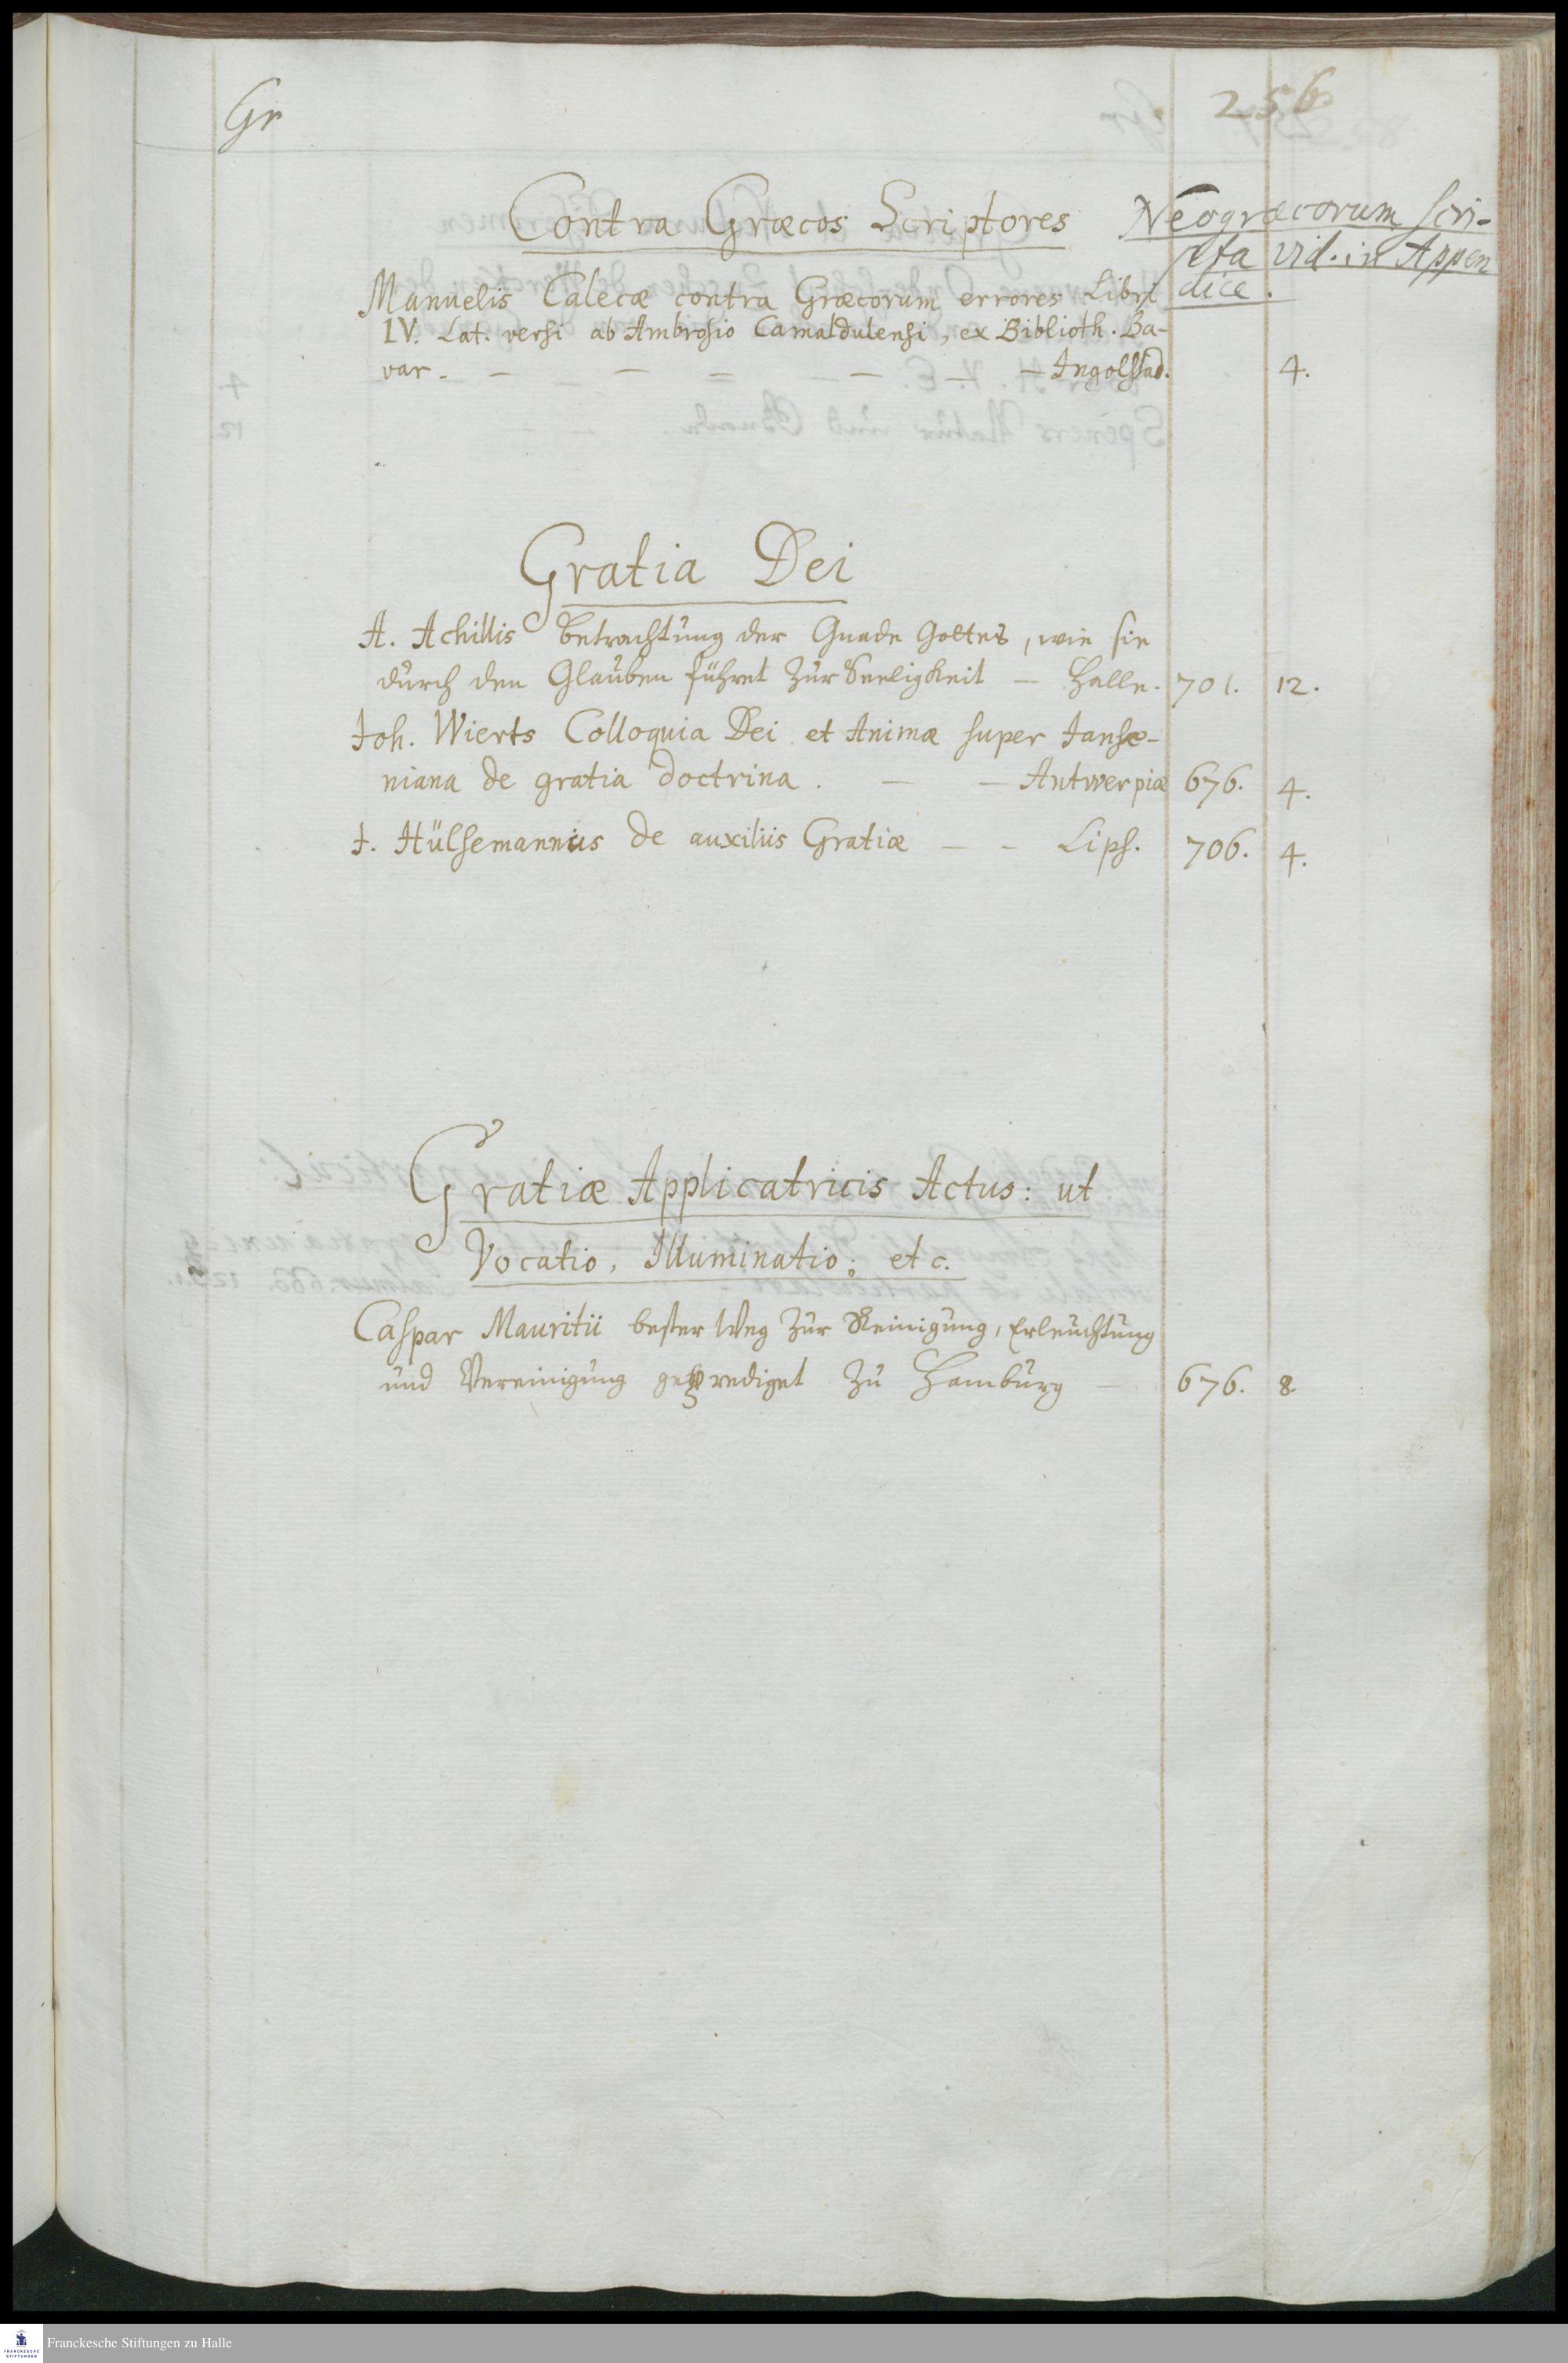 Gr
256
Contra Græcos Scriptores
Neogræcorum scri-
pta vid. in Appen
dice.
Manuelis Calecæ contra Græcorum errores Libri
IV. Lat. versi ab Ambrosio Camaldulensi, ex Biblioth. Ba-
var. — — — — — — Ingolstad. 4.
Gratia Dei
A. Achillis Betrachtung der Gnade Gottes, wie sie
durch den Glauben führet zur Seeligkeit — Halle. 701. 12.
Joh. Wierts Colloquia Dei et Animæ super Janse-
niana de gratia doctrina. — — Antwerpiæ 676. 4.
J. Hülsemannus de auxiliis Gratiæ — — Lips. 706. 4.
Gratiæ Applicatricis Actus: ut
Vocatio, Illuminatio; etc.
Caspar Mauritii bester Weg zur Reinigung, Erleuchtung
und Vereinigung geprediget zu Hamburg — 676. 8
Franckesche Stiftungen zu Halle
FRANCKESCHE
STIFTUNGEN